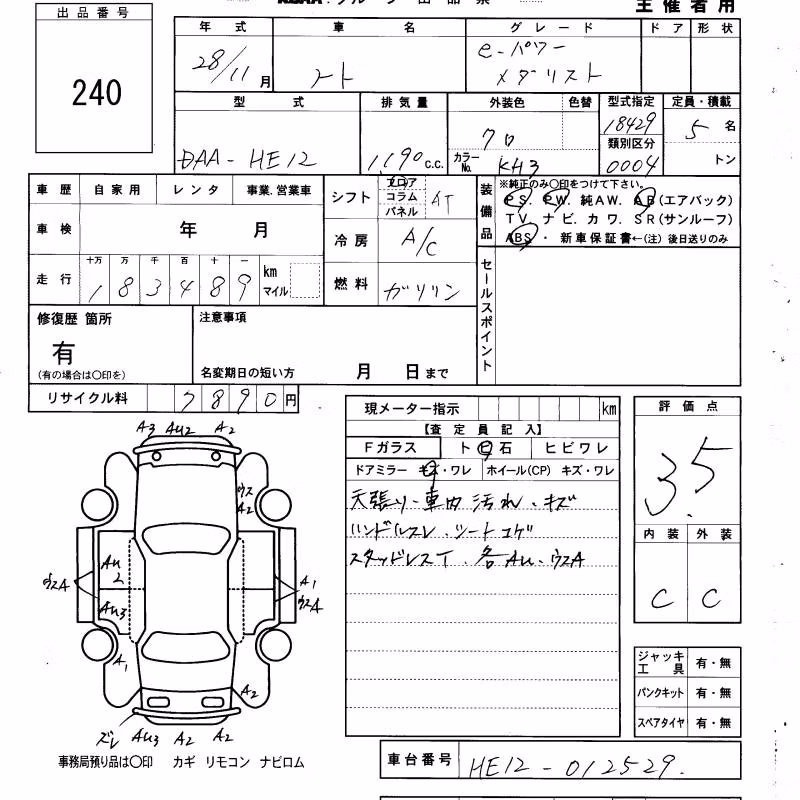 出品番号
240
主催者用
年式 車名 グレード ドア 形状
28/11月 ノート e-パワー
メダリスト
型式 排気量 外装色 色替 型式指定 定員・積載
クロ 18429 5名
類別区分
DAA-HE12 1190c.c. カラーNo. KH3 0004 トン
車歴 自家用 レンタ 事業.営業車
シフト フロア コラム パネル AT
装備品 ※純正のみ○印をつけて下さい。
PS. PW. 純AW. AB(エアバック)
TV. ナビ. カワ. SR(サンルーフ)
ABS・新車保証書←(注)後日送りのみ
車検 年 月
冷房 A/C
走行 十万 万 千 百 十 一 km マイル
183489
燃料 ガソリン
セールスポイント
修復歴 箇所
有
(有の場合は○印を)
注意事項
名変期日の短い方 月 日まで
リサイクル料 7890円
現メーター指示 km
【査定員記入】
Fガラス ト ビ 石 ヒビワレ
ドアミラー キズ・ワレ ホイール(CP) キズ・ワレ
天張り・車内 汚れ・キズ
ハンドルスレ.シートコゲ
スタッドレスT.各AU.ウスA
評価点
3.5
内装 外装
C C
ジャッキ工具 有・無
パンクキット 有・無
スペアタイヤ 有・無
A3 AU2 A2
ウス
A2
AU
2
ウスA
AU3
A1
ウスA
A1
A2
ズレ AU3 A2 A2
事務局預り品は○印 カギ リモコン ナビロム
車台番号 HE12-012529.